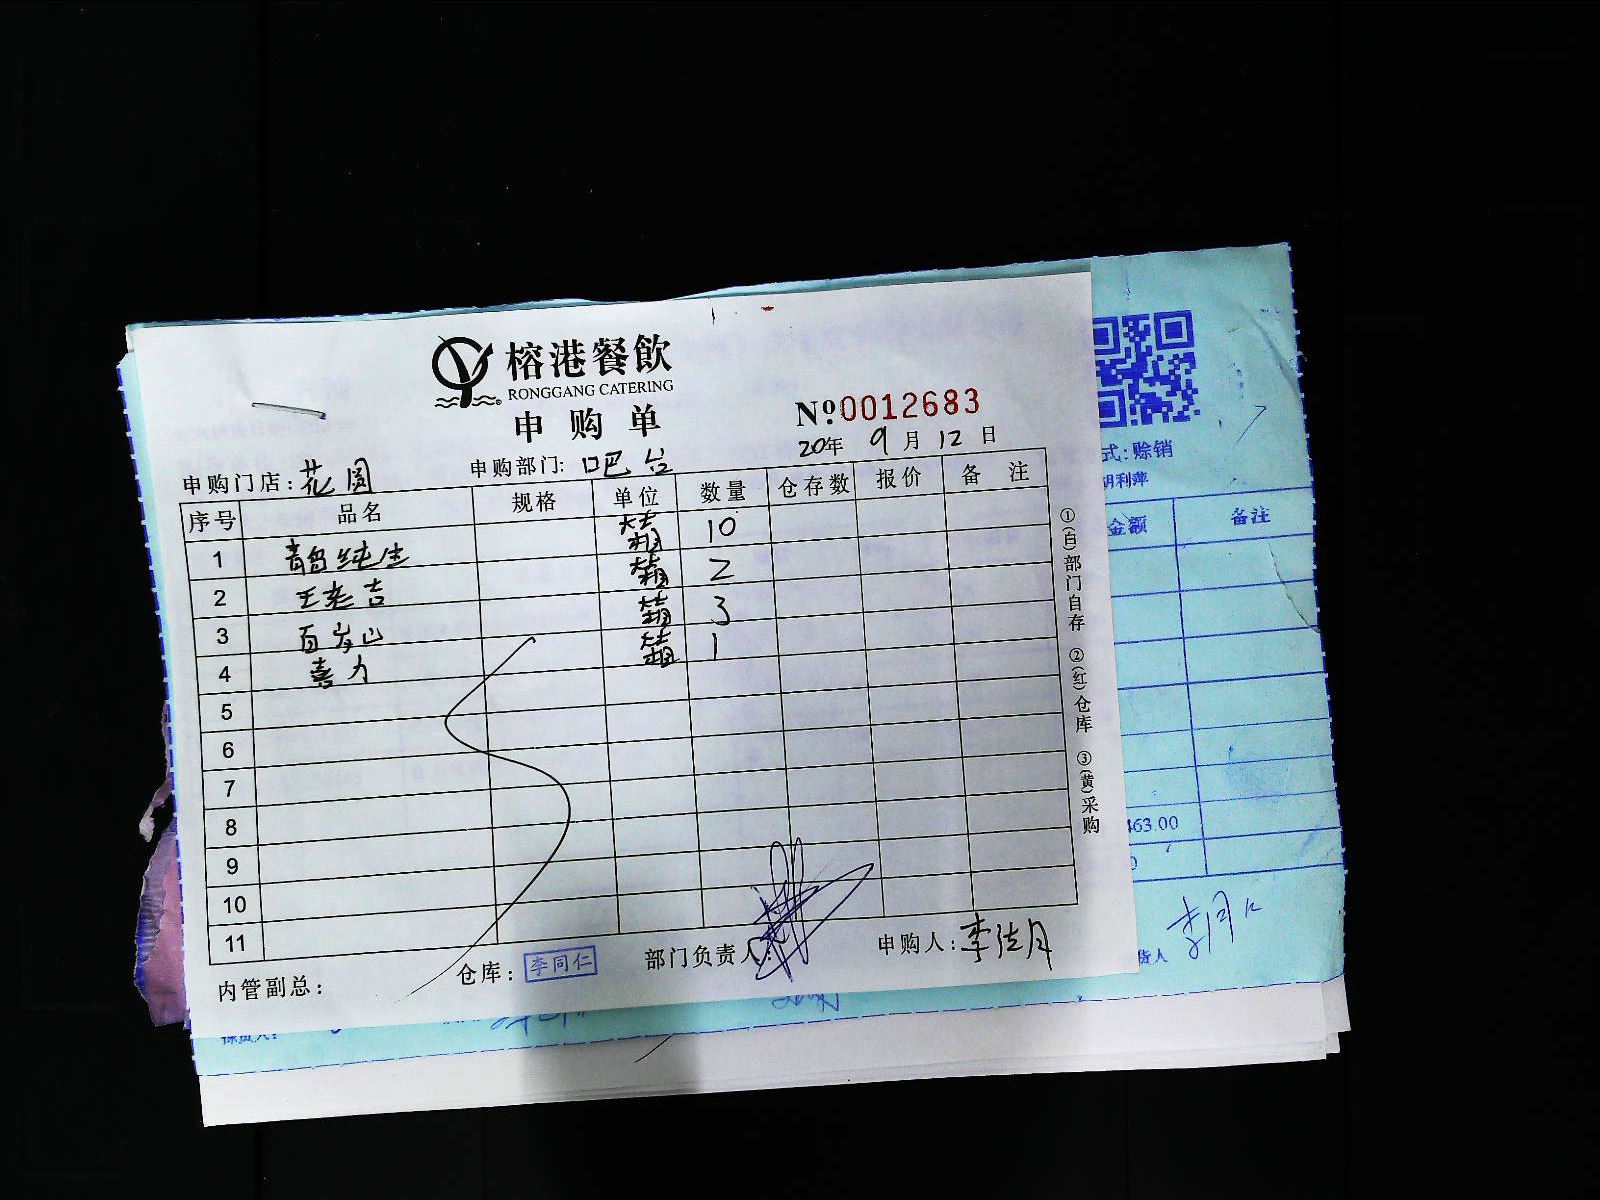 榕港餐飲
RONGGANG CATERING
申购单
№0012683
20年 9月 12日
申购门店:花园 申购部门:吧台
序号 品名 规格 单位 数量 仓存数 报价 备注
1 青岛纯生 箱 10
2 王老吉 箱 2
3 百岁山 箱 3
4 喜力 箱 1
5
6
7
8
9
10
11
内管副总: 仓库:李同仁 部门负责人: 申购人:
①(白)部门自存 ②(红)仓库 ③(黄)采购
式:赊销
胡利萍
金额 备注
463.00
货人 李同仁